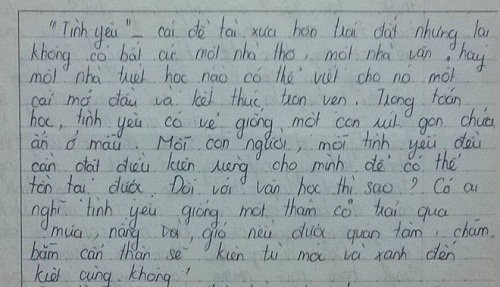 "Tình yêu" – cái đề tài xưa hơn trái đất nhưng lại
không có bất cứ một nhà thơ, một nhà văn, hay
một nhà triết học nào có thể viết cho nó một
cái mở đầu và kết thúc trọn vẹn. Trong toán
học, tình yêu có vẻ giống một con rút gọn chứa
ẩn ở mẫu. Mỗi con người, mỗi tình yêu đều
cần đặt điều kiện riêng cho mình để có thể
tồn tại được. Đối với văn học thì sao? Có ai
nghĩ tình yêu giống một thảm cỏ trải qua
mưa, nắng và gió nếu được quan tâm, chăm
bẵm cẩn thận sẽ kiên trì mọc và xanh đến
kiệt cùng không?